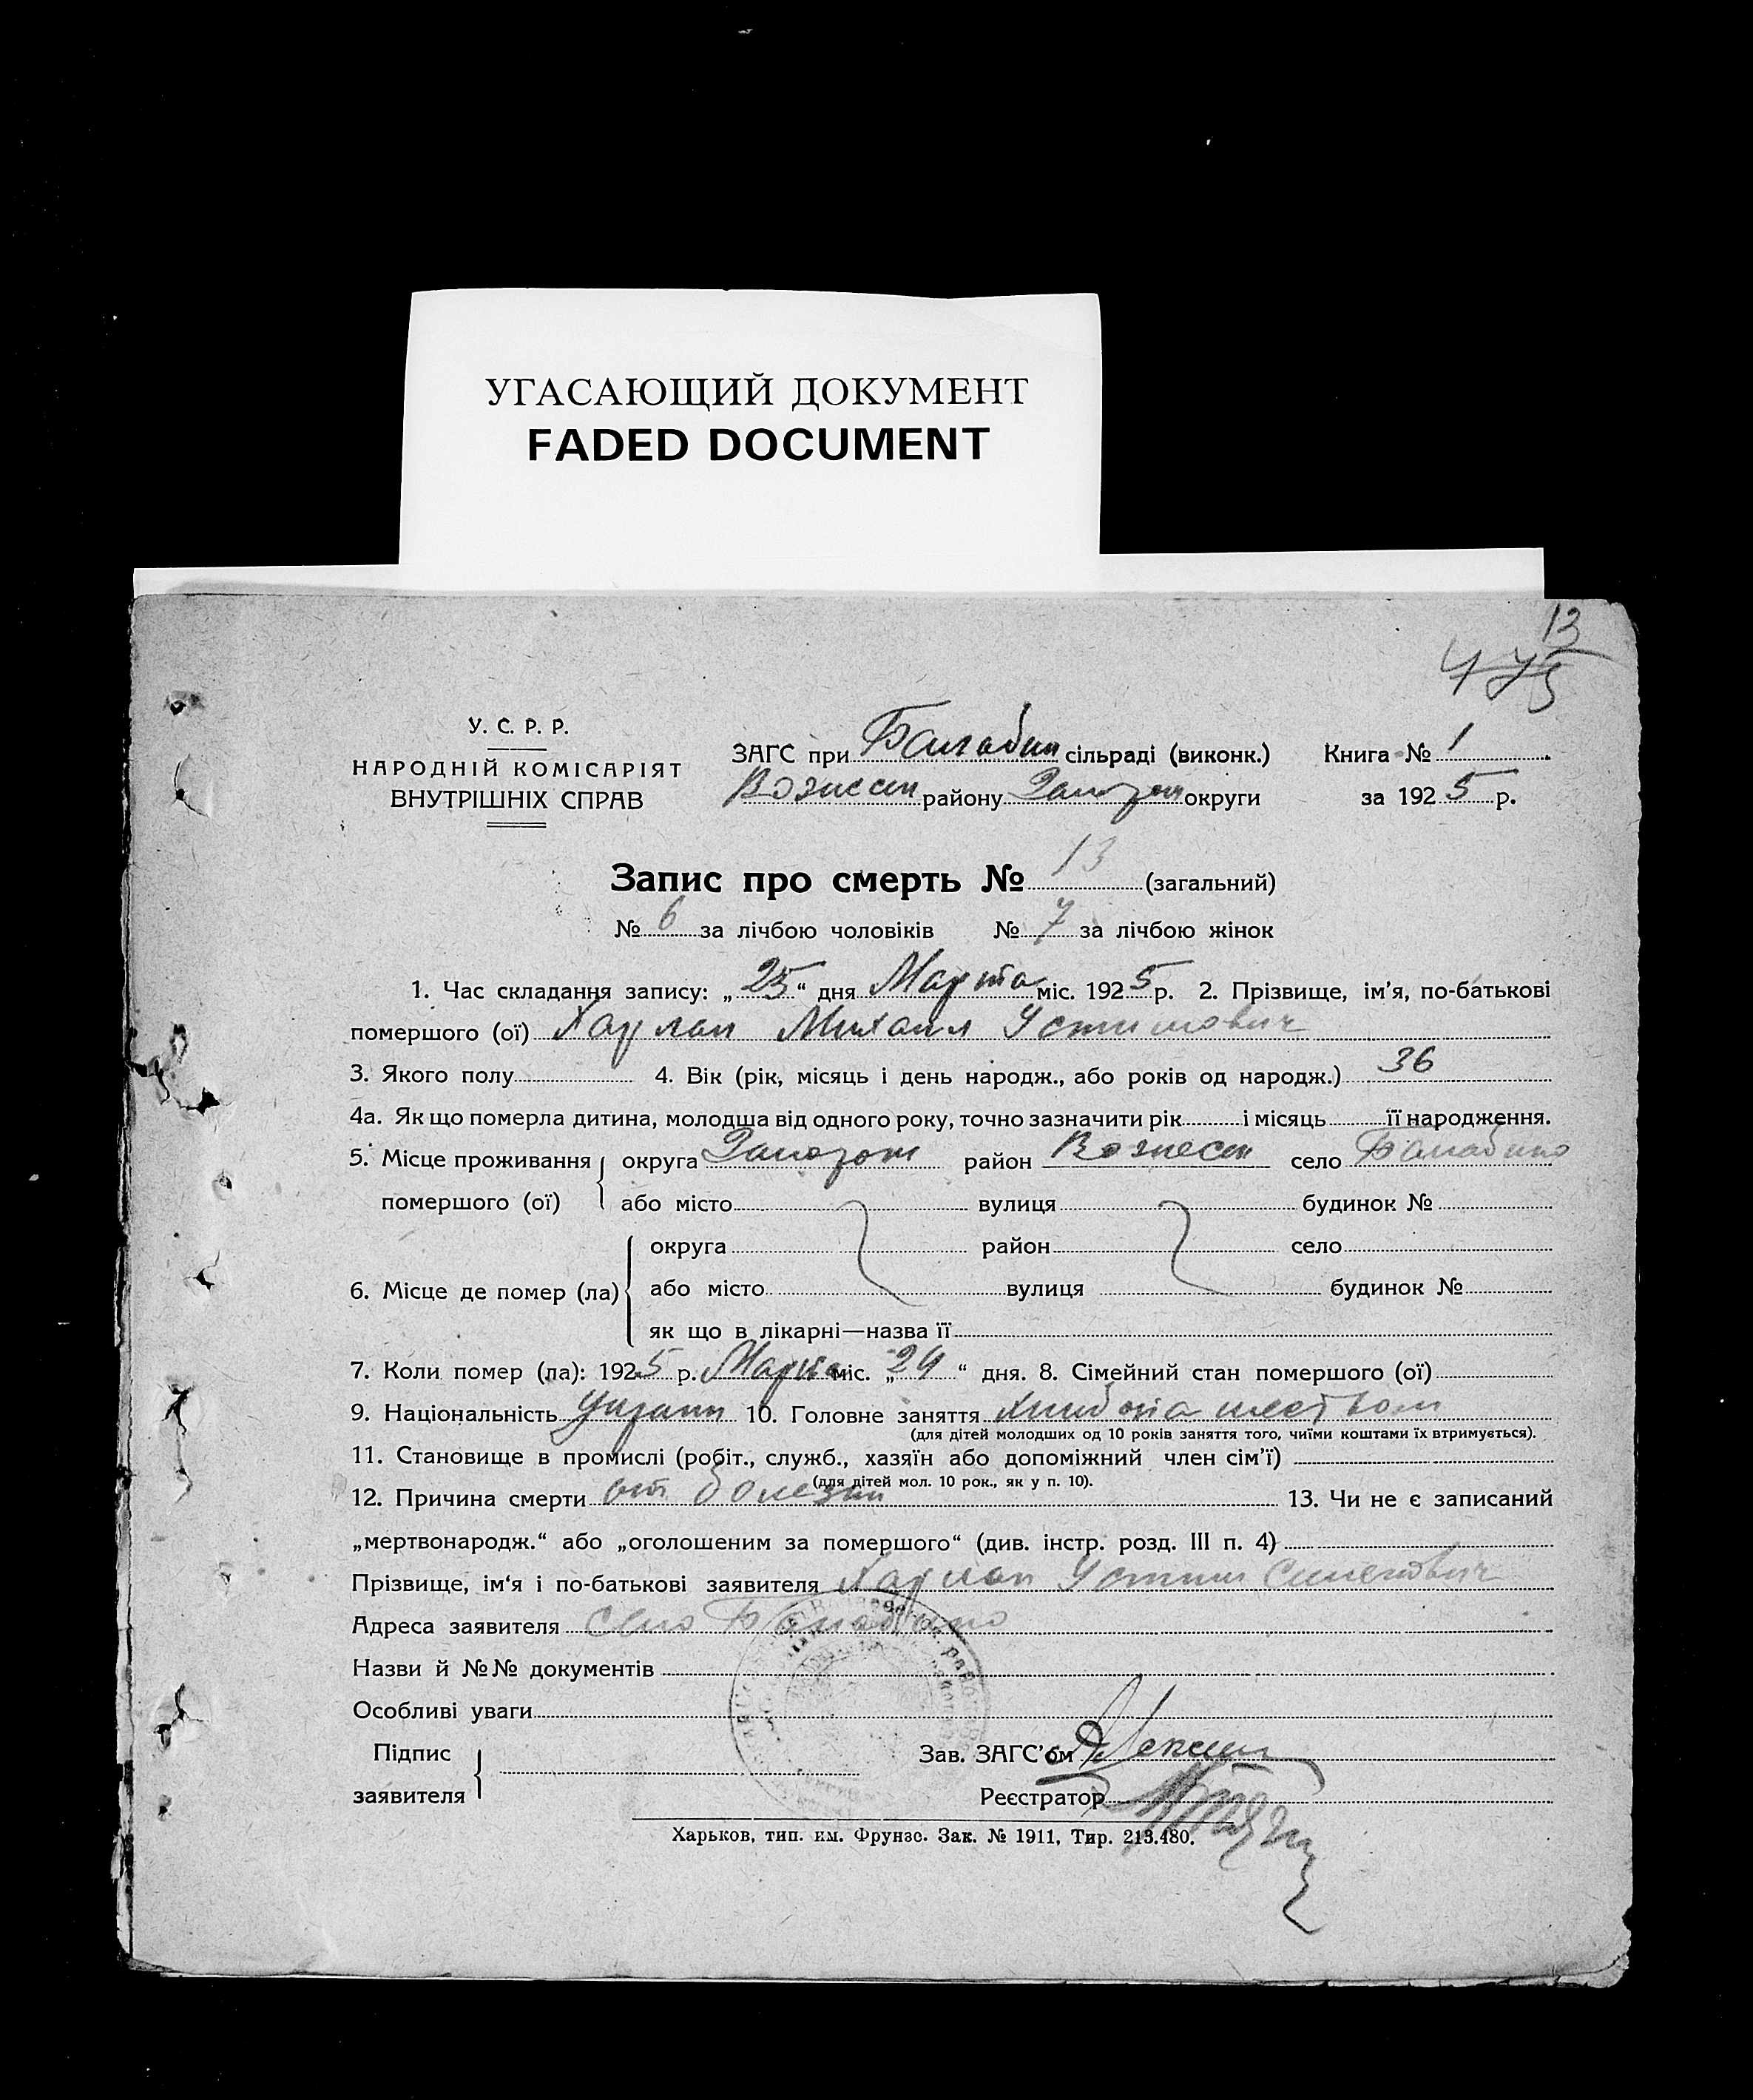 УГАСАЮЩИЙ ДОКУМЕНТ
FADED DOCUMENT
13
475
У. С. Р. Р.
НАРОДНІЙ КОМІСАРІЯТ
ВНУТРІШНІХ СПРАВ
ЗАГС при Балабин сільраді (виконк.) Книга № 1
Вознесен району Запорож округи за 1925 р.
Запис про смерть № 13 (загальний)
№ 6 за лічбою чоловіків № 7 за лічбою жінок
1. Час складання запису: „25“ дня Марта міс. 1925 р. 2. Прізвище, ім'я, по-батькові
помершого (ої) Харлан Михаил Устимович
3. Якого полу 4. Вік (рік, місяць і день народж., або років од народж.) 36
4а. Як що померла дитина, молодша від одного року, точно зазначити рік і місяць її народження.
5. Місце проживання округа Запорож район Вознесен село Балабино
помершого (ої) або місто вулиця будинок №
округа район село
6. Місце де помер (ла) або місто вулиця будинок №
як що в лікарні—назва її
7. Коли помер (ла): 1925 р. Марта міс. „24“ дня. 8. Сімейний стан помершого (ої)
9. Національність 10. Головне заняття
(для дітей молодших од 10 років заняття того, чиїми коштами їх втримується).
11. Становище в промислі (робіт., служб., хазяїн або допоміжний член сім'ї)
(для дітей мол. 10 рок., як у п. 10).
12. Причина смерти от болезни 13. Чи не є записаний
„мертвонародж.“ або „оголошеним за помершого“ (див. інстр. розд. III п. 4)
Прізвище, ім'я і по-батькові заявителя Харлан Устим
Адреса заявителя Село Балабино
Назви й №№ документів
Особливі уваги
Підпис Зав. ЗАГС'ом
заявителя Реєстратор
Харьков, тип. им. Фрунзе. Зак. № 1911, Тир. 213.480.